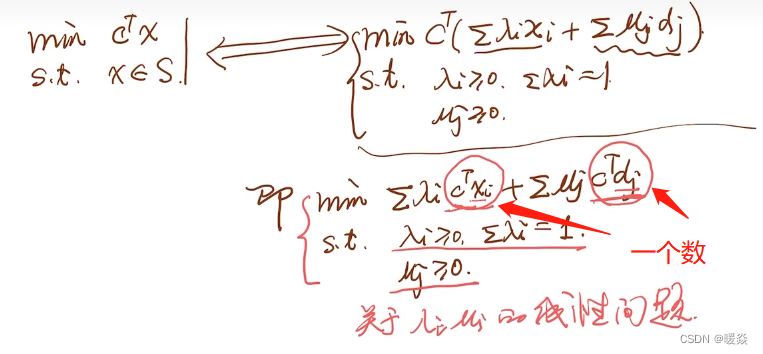 min CᵀX
s.t. X∈S.
min Cᵀ(Σλixi + Σμjdj)
s.t. λi≥0. Σαi=1.
μj≥0.
即 min Σλi cᵀxi + Σμj cᵀdj
s.t. λi≥0, Σλi=1.
μj≥0.
一个数
关于λi μj的线性问题.
CSDN @暖焱